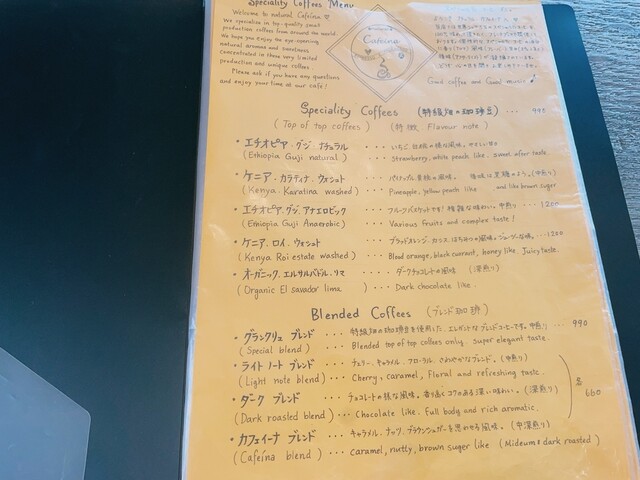 Speciality Coffees Menu
Welcome to natural Cafeina ♡
We specialize in top-quality small
production coffees from around the world
We hope you enjoy the eye-opening
natural aromas and sweetness
concentrated in these very limited
production and unique coffees
Please ask if you have any questions
and enjoy your time at our café!
Cafeina
Good coffee and Good music
Speciality Coffees (特級畑の珈琲豆) ... 990
(Top of top coffees) (特徴 Flavour note)
・エチオピア.グジ.ナチュラル ... いちご.白桃の様な風味。やさしい甘さ
(Ethiopia Guji natural) ... Strawberry, white peach like. sweet after taste.
・ケニア.カラティナ.ウォシュト ... パイナップル.黄桃の風味。 後味は黒糖のよう。(中煎り)
(Kenya. Karatina washed) ... Pineapple, yellow peach like and like brown suger
・エチオピア.グジ.アナエロビック ... フルーツバスケットです! 複雑な味わい。中煎り ... 1200
(Emiopia Guji Anaerobic) ... Various fruits and complex taste!
・ケニア.ロイ.ウォシュト ... ブラッドオレンジ.カシス.はちみつの風味。ジューシーな味。...1200
(Kenya Roi estate washed) ... Blood orange, black currant, honey like. Juicy taste.
・オーガニック.エルサルバドル.リマ ... ダークチョコレートの風味 (深煎り)
(Organic El savador lime ) ... Dark chocolate like.
Blended Coffees (ブレンド珈琲)
・グランクリュ ブレンド ... 特級畑の珈琲豆を使用した.エレガントなブレンドコーヒーです。中煎り ... 990
(Special blend) ... Blended top of top coffees only. super elegant taste.
・ライト ノート ブレンド ... チェリー.キャラメル.フローラル.さわやかなブレンド。(中煎り)
(Light note blend) ... Cherry, caramel, flural and refreshing taste.
・ダーク ブレンド ... チョコレートの様な風味。香り高くコクのある深い味わい。(深煎り)
(Dark roasted blend) ... Chocolate like. Full body and rich aromatic.
各 660
・カフェイーナ ブレンド ... キャラメル.ナッツ.ブラウンシュガーを思わせる風味。(中深煎り)
(Cafeína blend) ... caramel, nutty, brown suger like (Mideum & dark roasted)